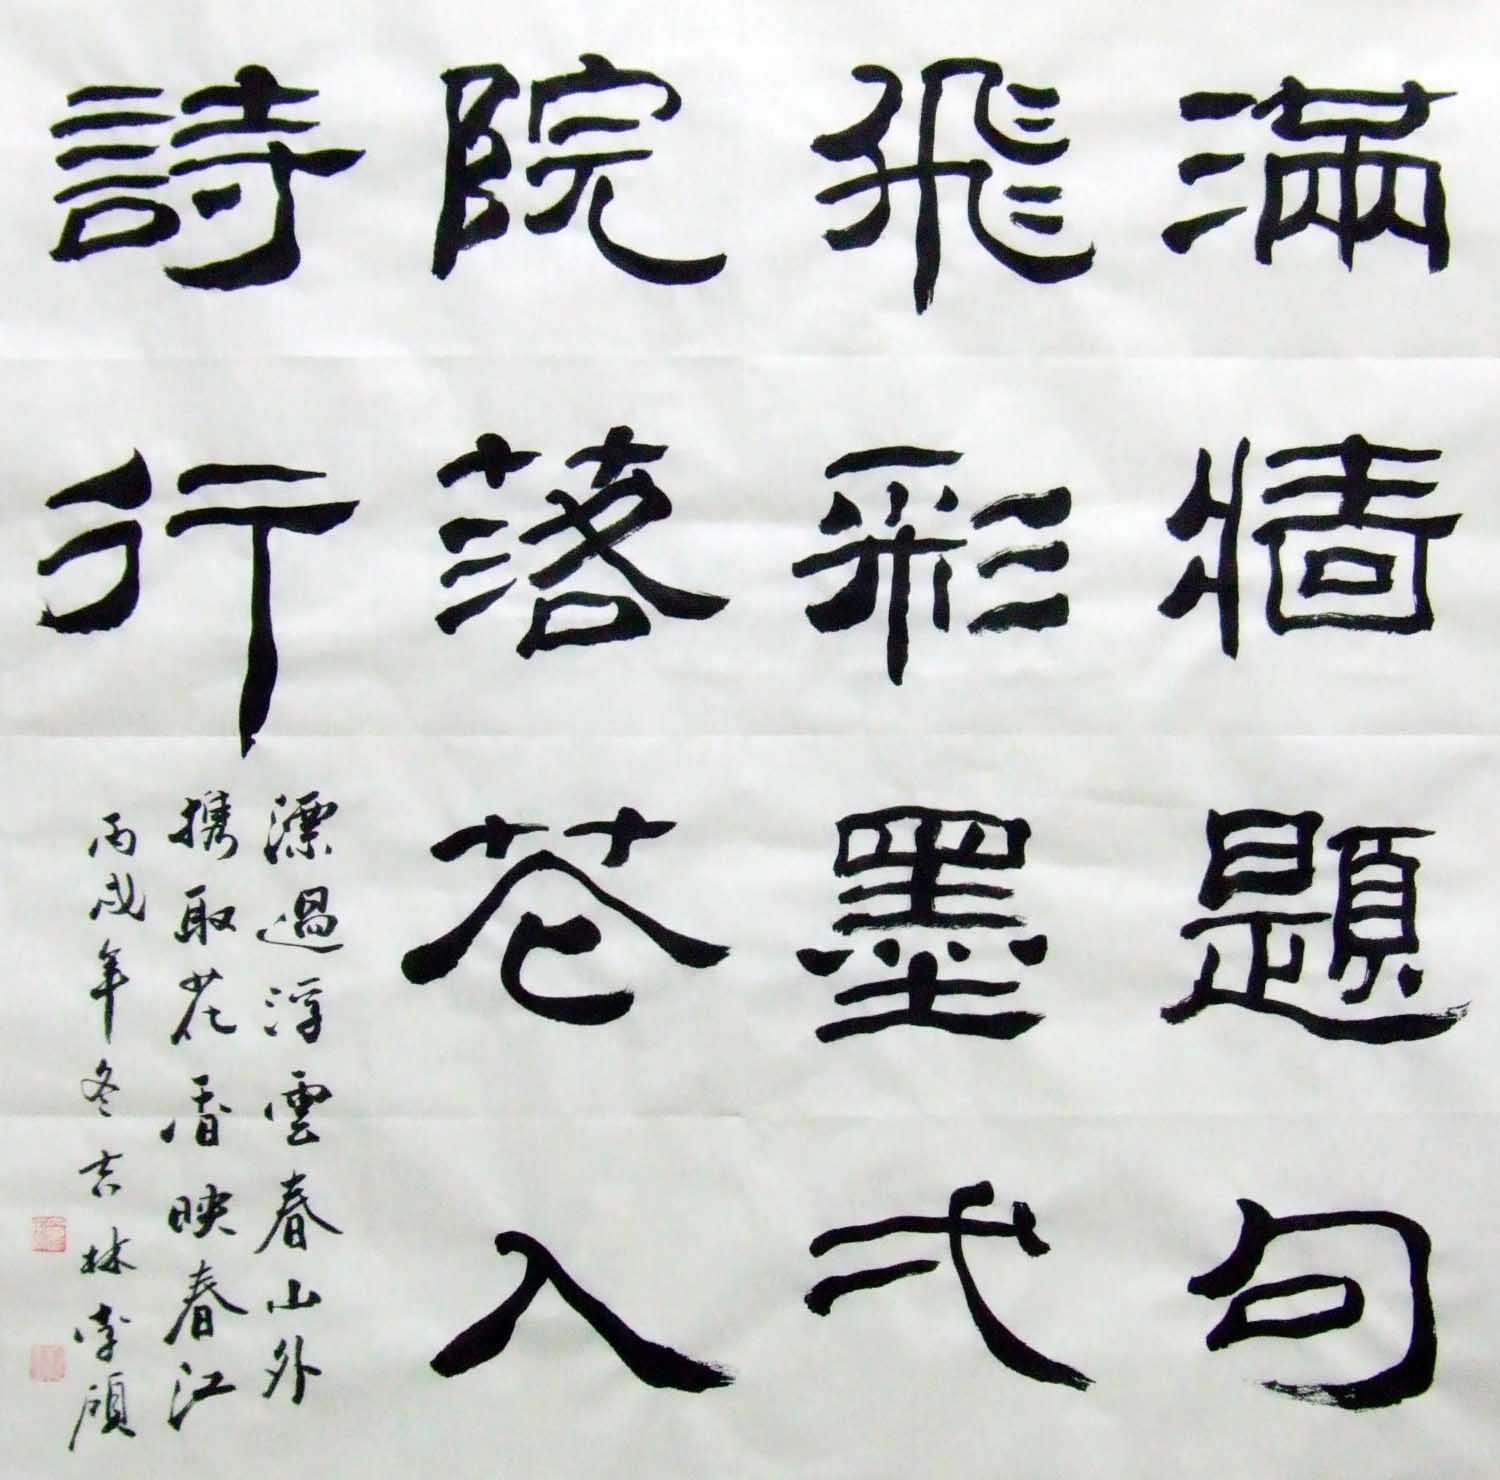 滿牆題句
飛彩墨弌
院落花入
詩行
漂過浮雲春山外
携取花香映春江
丙戌年冬吉林李